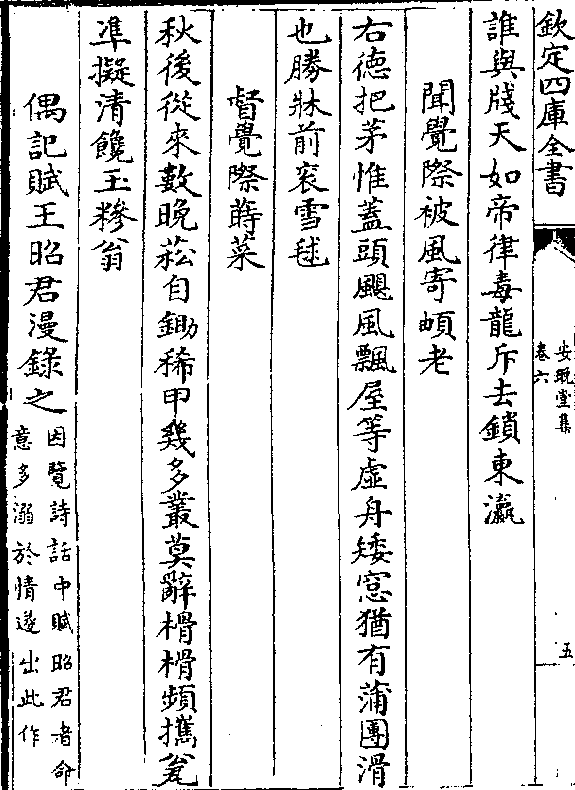 欽定四庫全書
安晚堂集
卷六
五
誰與牋天如帝律毒龍斥去鎖東瀛
聞覺際被風寄頔老
右德把茅惟蓋頭颶風飄屋等虛舟矮窓猶有蒲團滑
也勝牀前衮雪毬
督覺際蒔菜
秋後從來數晚菘自鋤稀甲幾多叢莫辭榾榾頻擕瓮
凖擬清饞玉糝翁
偶記賦王昭君漫錄之
因覽詩話中賦昭君者命
意多溺於情遂出此作